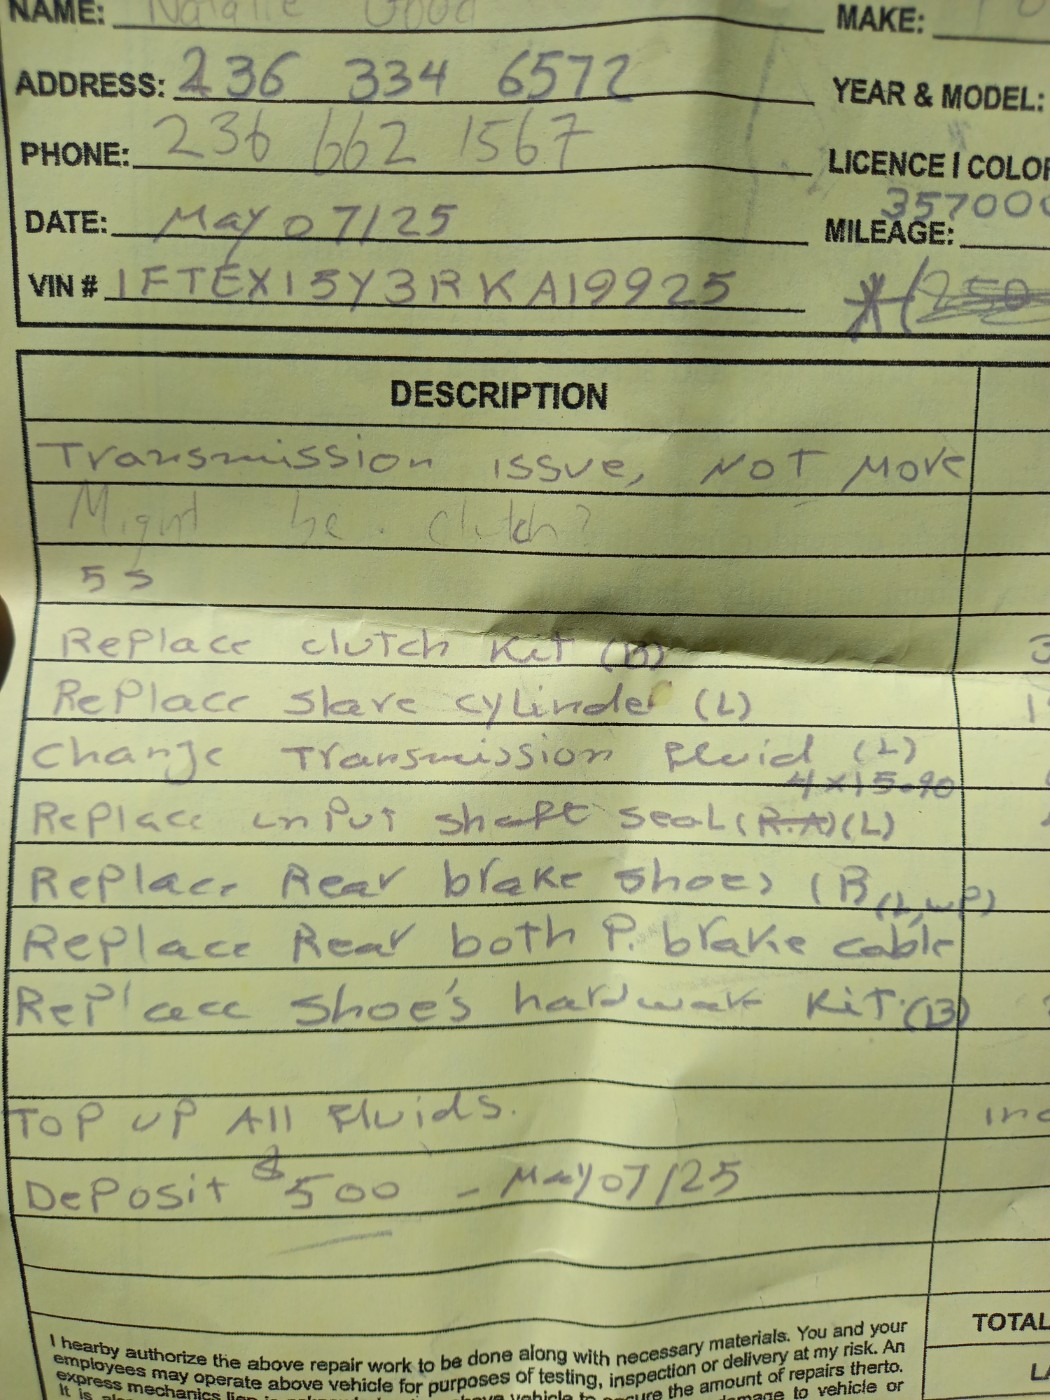 NAME: Natalie Good MAKE:
ADDRESS: 236 334 6572 YEAR & MODEL:
PHONE: 236 662 1567 LICENCE / COLOR
DATE: May 07/25 MILEAGE: 357000
VIN # 1FTEX15Y3RKA19925
DESCRIPTION
Transmission issue, NOT Move
Might be clutch?
5 s
Replace clutch Kit (B)
Replace slave cylinder (L)
Change Transmission Fluid (L)
4x15.90
Replace input shaft seal (R.A) (L)
Replace Rear brake shoes (B
Replace Rear both P. brake cable
Replace shoe's hardware Kit (B)
Top up All Fluids. inc
Deposit $500 - May 07/25
TOTAL
I hearby authorize the above repair work to be done along with necessary materials. You and your
employees may operate above vehicle for purposes of testing, inspection or delivery at my risk. An
express mechanics lien is vehicle to secure the amount of repairs therto.
It is damage to vehicle or
LA